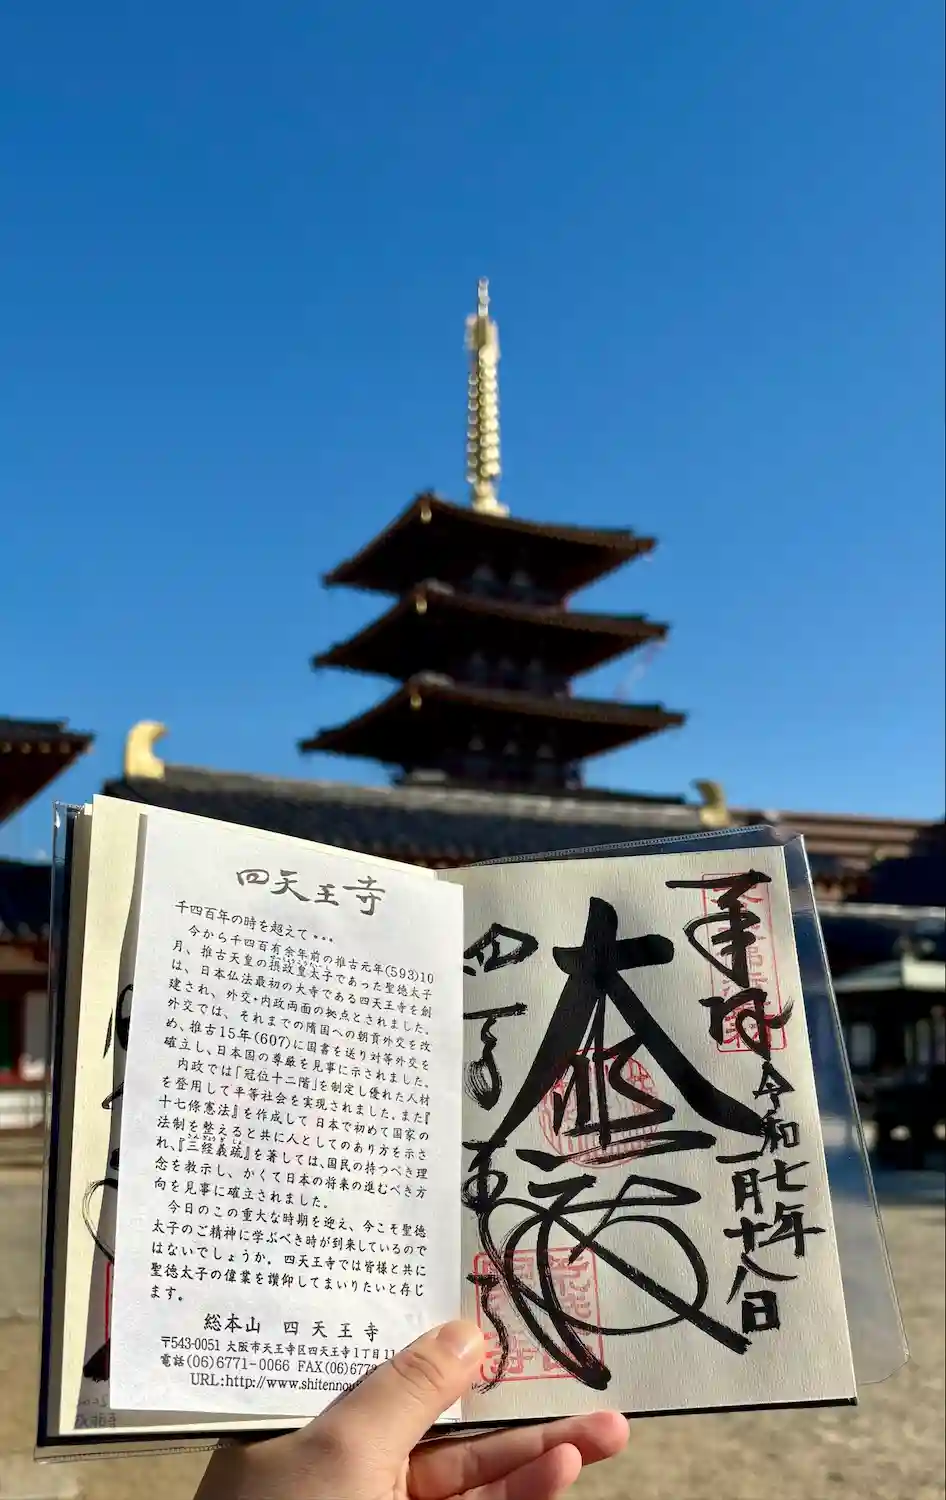 四天王寺
千四百年の時を越えて・・・
今から千四百有余年前の推古元年(593)10
月、推古天皇の摂政皇太子であった聖徳太子
は、日本仏法最初の大寺である四天王寺を創
建され、外交・内政両面の拠点とされました。
外交では、それまでの隋国への朝貢外交を改
め、推古15年(607)に国書を送り対等外交を
確立し、日本国の尊厳を見事に示されました。
内政では「冠位十二階」を制定し優れた人材
を登用して平等社会を実現されました。また『
十七條憲法』を作成して日本で初めて国家の
法制を整えると共に人としてのあり方を示さ
れ、『三経義疏』を著しては、国民の持つべき理
念を教示し、かくて日本の将来の進むべき方
向を見事に確立されました。
今日のこの重大な時期を迎え、今こそ聖徳
太子のご精神に学ぶべき時が到来しているので
はないでしょうか。四天王寺では皆様と共に
聖徳太子の偉業を讃仰してまいりたいと存じ
ます。
総本山 四天王寺
〒543-0051 大阪市天王寺区四天王寺1丁目11
電話(06)6771-0066 FAX(06)677
URL:http://www.shitenno
奉拝
令和七年
一月十八日
大
四天王寺